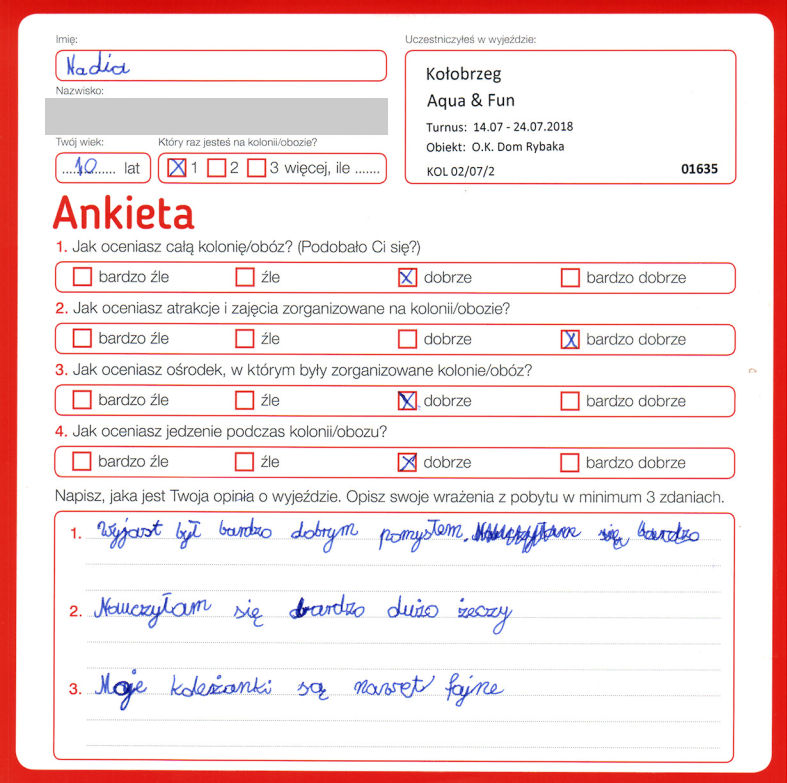 Imię:
Nadia
Nazwisko:
Twój wiek:
10 lat
Który raz jesteś na kolonii/obozie?
1 2 3 więcej, ile .......
Uczestniczyłeś w wyjeździe:
Kołobrzeg
Aqua & Fun
Turnus: 14.07 - 24.07.2018
Obiekt: O.K. Dom Rybaka
KOL 02/07/2 01635
Ankieta
1. Jak oceniasz całą kolonię/obóz? (Podobało Ci się?)
bardzo źle źle dobrze bardzo dobrze
2. Jak oceniasz atrakcje i zajęcia zorganizowane na kolonii/obozie?
bardzo źle źle dobrze bardzo dobrze
3. Jak oceniasz ośrodek, w którym były zorganizowane kolonie/obóz?
bardzo źle źle dobrze bardzo dobrze
4. Jak oceniasz jedzenie podczas kolonii/obozu?
bardzo źle źle dobrze bardzo dobrze
Napisz, jaka jest Twoja opinia o wyjeździe. Opisz swoje wrażenia z pobytu w minimum 3 zdaniach.
1. Wyjast był bardzo dobrym pomysłem. się bardzo
2. Nauczyłam się bardzo dużo żeczy
3. Moje koleżanki są nawet fajne